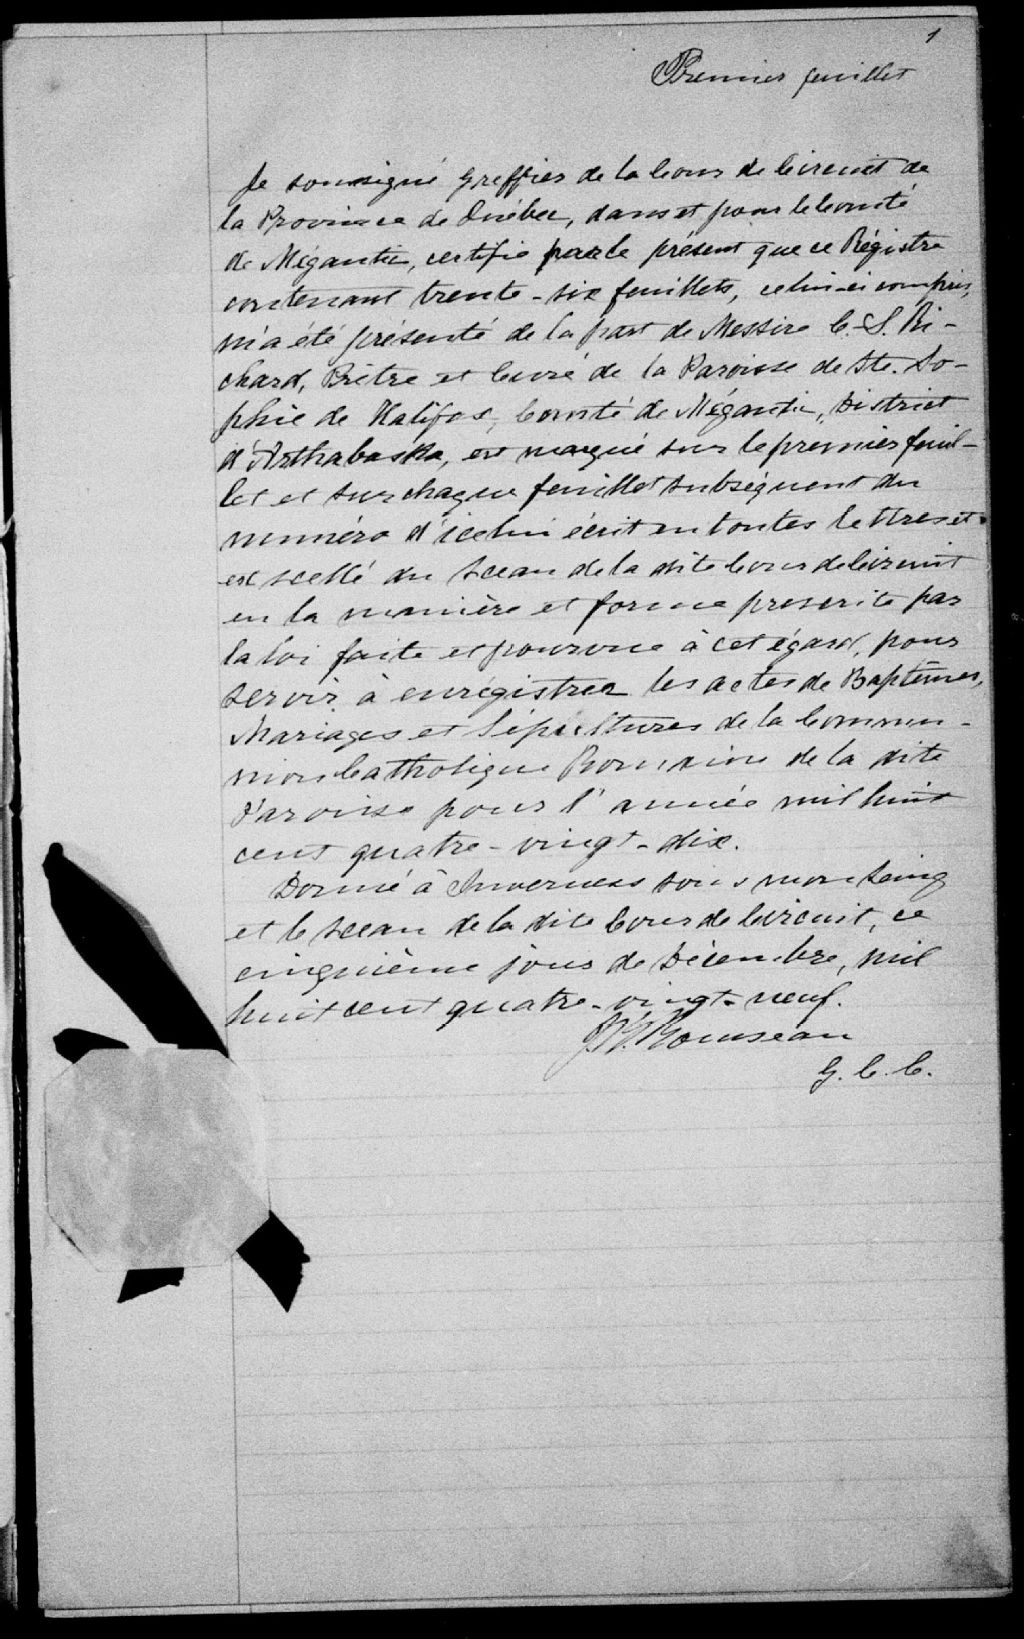 1
Premier feuillet
Je soussigné Greffier de la Cour de Circuit de
la Province de Québec, dans et pour le Comté
de Mégantic, certifie par le présent que ce Régistre
contenant trente-six feuillets, celui-ci compris,
m'a été présenté de la part de Messire C. S. Ri-
chard, Prêtre et Curé de la Paroisse de Ste. So-
phie de Halifax, Comté de Mégantic, District
d'Arthabaska, est marqué sur le premier feuil-
let et sur chaque feuillet subséquent du
numéro d'icelui écrit en toutes lettres et
est scellé du Sceau de la dite Cour de Circuit
en la manière et forme prescrite par
la loi faite et pourvue à cet égard, pour
servir à enrégistrer les actes de Baptêmes,
Mariages et Sépultures de la Commu-
nion Catholique Romaine de la dite
Paroisse pour l'année mil huit
cent quatre-vingt-dix.
Donné à Inverness sous mon Seing
et le sceau de la dite Cour de Circuit, ce
cinquième jour de Décembre, mil
huit cent quatre-vingt-neuf.
Rousseau
G. C. C.